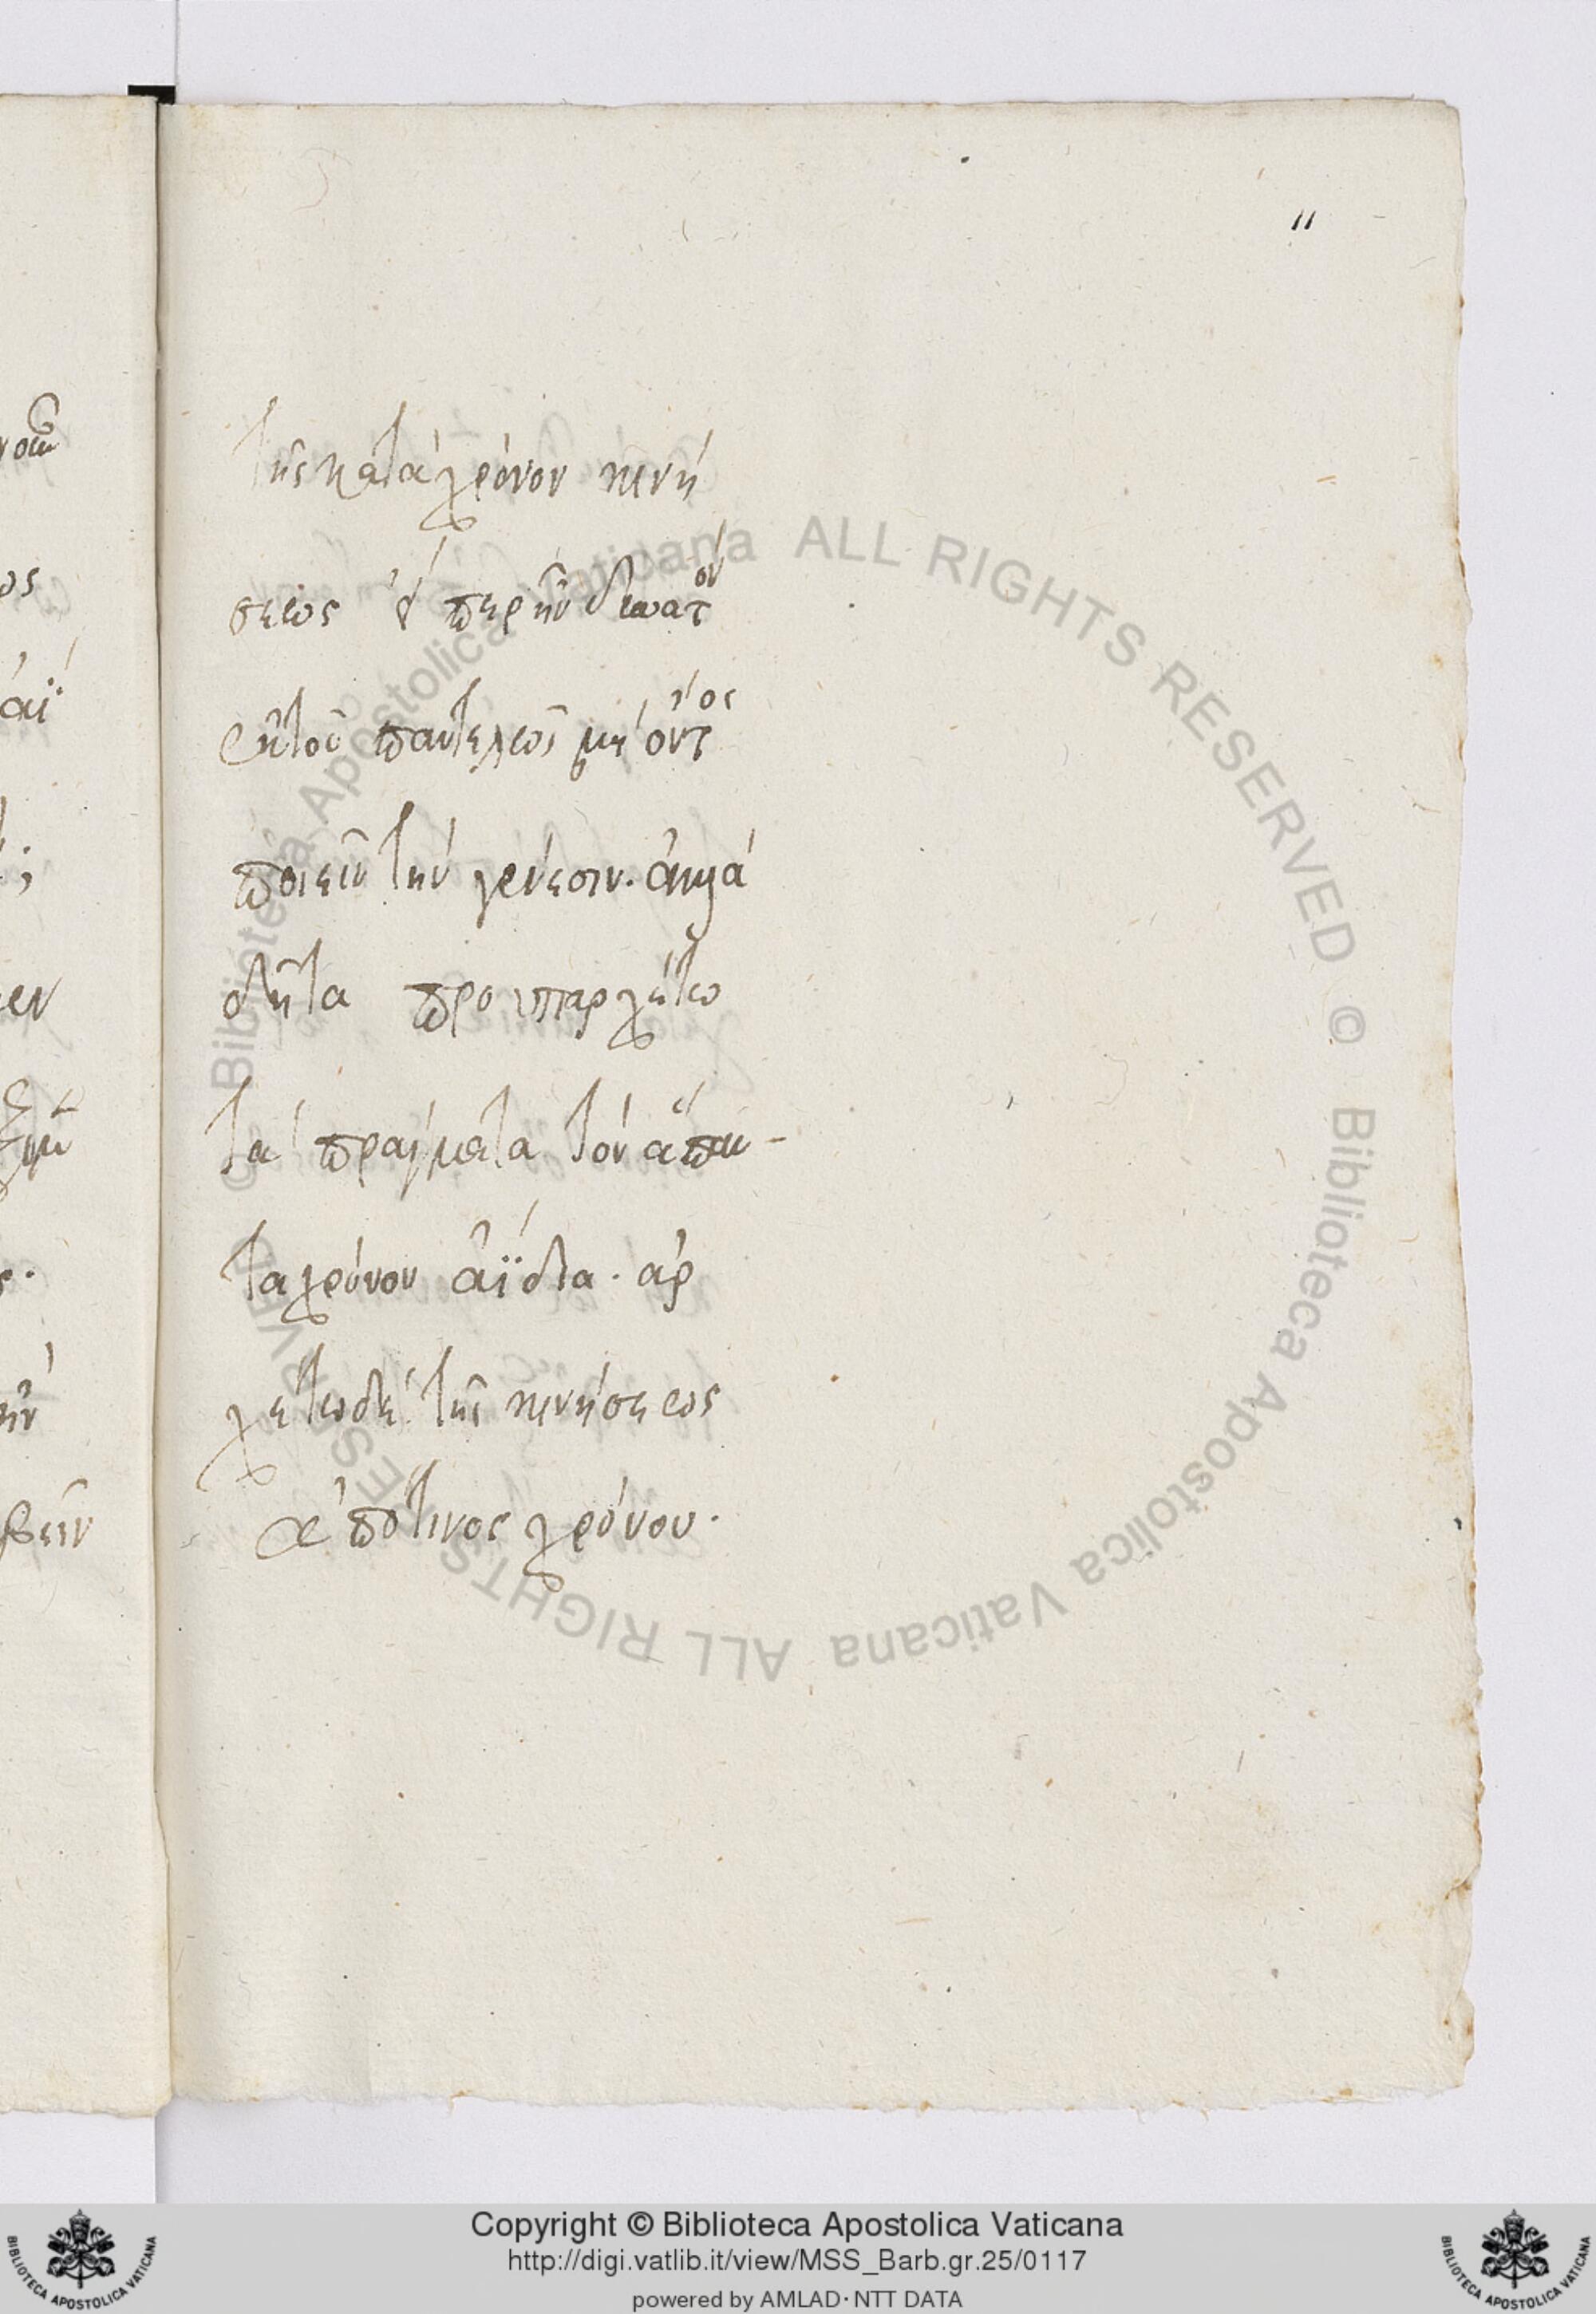 11
τῆς κατὰ χρόνον κινή
σεως εἴ περ ἦν δυνατὸν
ἐκ τοῦ παντελῶς μὴ ὄντος
ποιεῖν τὴν γένεσιν.
δῆτα προυπαρχέτω
τὰ πράγματα τὸν ἅπαν-
τα χρόνον ἀΐδια. ἀρ
χέτω δὲ τῆς κινήσεως
ἀπό τινος χρόνου.
© Biblioteca Apostolica Vaticana ALL RIGHTS RESERVED © Biblioteca Apostolica Vaticana ALL RIGHTS RESERVED
Copyright © Biblioteca Apostolica Vaticana
http://digi.vatlib.it/view/MSS_Barb.gr.25/0117
powered by AMLAD·NTT DATA
BIBLIOTECA APOSTOLICA VATICANA
BIBLIOTECA APOSTOLICA VATICANA